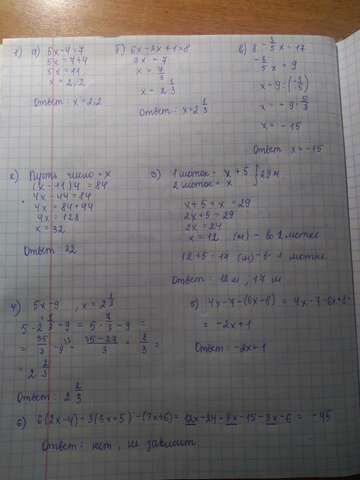 1) а) 5x-4=7
5x=7+4
5x=11
x=2,2
Ответ: x=2,2
б) 6x-3x+1=8
3x=7
x=7/3
x=2 1/3
Ответ: x=2 1/3
в) 8-3/5x=17
-3/5x=9
x=9:(-3/5)
x=-9·5/3
x=-15
Ответ x=-15
2) Пусть число=x
(x-11)4=84
4x-44=84
4x=84+44
4x=128
x=32
Ответ: 32
3) 1 моток - x+5 } 29м
2 моток - x
x+5=x-29
2x+5=29
2x=24
x=12 (м) - во 2 мотке
12+5=17 (м) - в 1 мотке
Ответ: 12м, 17м
4) 5x-9, x=2 1/3
5·2 1/3-9=5·7/3-9=
=35/3-9=35-27/3=8/3=
=2 2/3
Ответ: 2 2/3
5) 4x-7-(6x-8)=4x-7-6x+8=
=-2x+1
Ответ: -2x+1
6) 6(2x-4)-3(3x+5)-(3x+6)=12x-24-9x-15-3x-6=-45
Ответ: нет, не зависит.